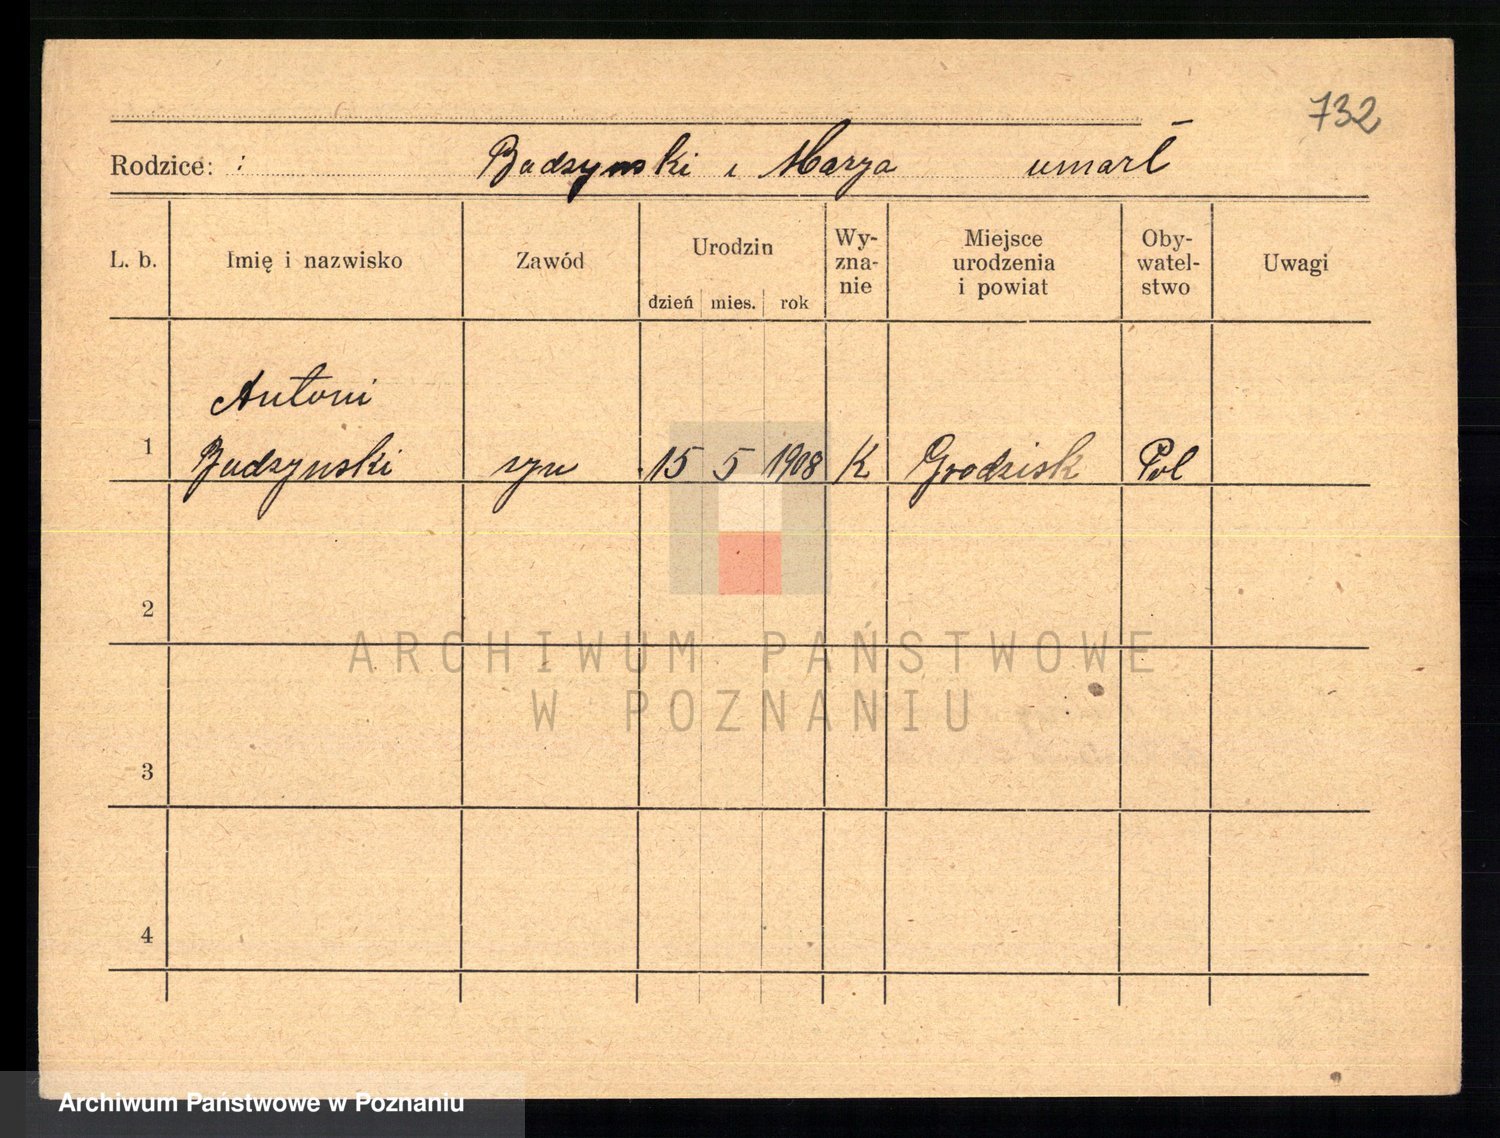 732
Rodzice: : Budzynski i Marya umarł
L. b. Imię i nazwisko Zawód Urodzin dzień mies. rok Wy-zna-nie Miejsce urodzenia i powiat Oby-watel-stwo Uwagi
Antoni
1 Budzynski syn 15 5 1908 K Grodzisk Pol
2
ARCHIWUM PAŃSTWOWE
W POZNANIU
3
4
Archiwum Państwowe w Poznaniu